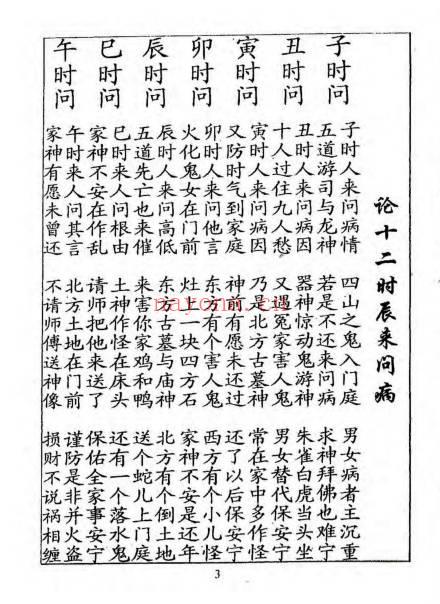 论十二时辰来问病
子时问
子时人来问病情 四山之鬼入门庭 男女病者主沉重
五道游司与龙神 若是不还来问病 求神拜佛也难宁
丑时问
丑时人来问病因 器神惊动鬼游神 朱雀白虎当头坐
十人过住九人愁 又遇冤家害人鬼 男女替代保安宁
寅时问
寅时人来问病因 乃是北方古墓神 常在家中多作怪
又防时气到家庭 神前有愿未还过 还了以后保安宁
卯时问
卯时人来问他言 东方有个害人鬼 西方有个小儿怪
火化鬼女在门前 灶前一块四方石 家神不安是还年
辰时问
辰时人来问高低 东方古墓与庙神 北方有个倒土地
五道先亡也来催 来害你家鸡和鸭 送个蛇儿上门庭
巳时问
巳时来人问根由 土神作怪在床头 还有一个落水鬼
家神不安在作乱 请师把他来送了 保佑全家事安宁
午时问
午时来人问其言 北方土地在门前 谨防是非并火盗
家神有愿未曾还 不请师傅送神像 损财不说祸相缠
3